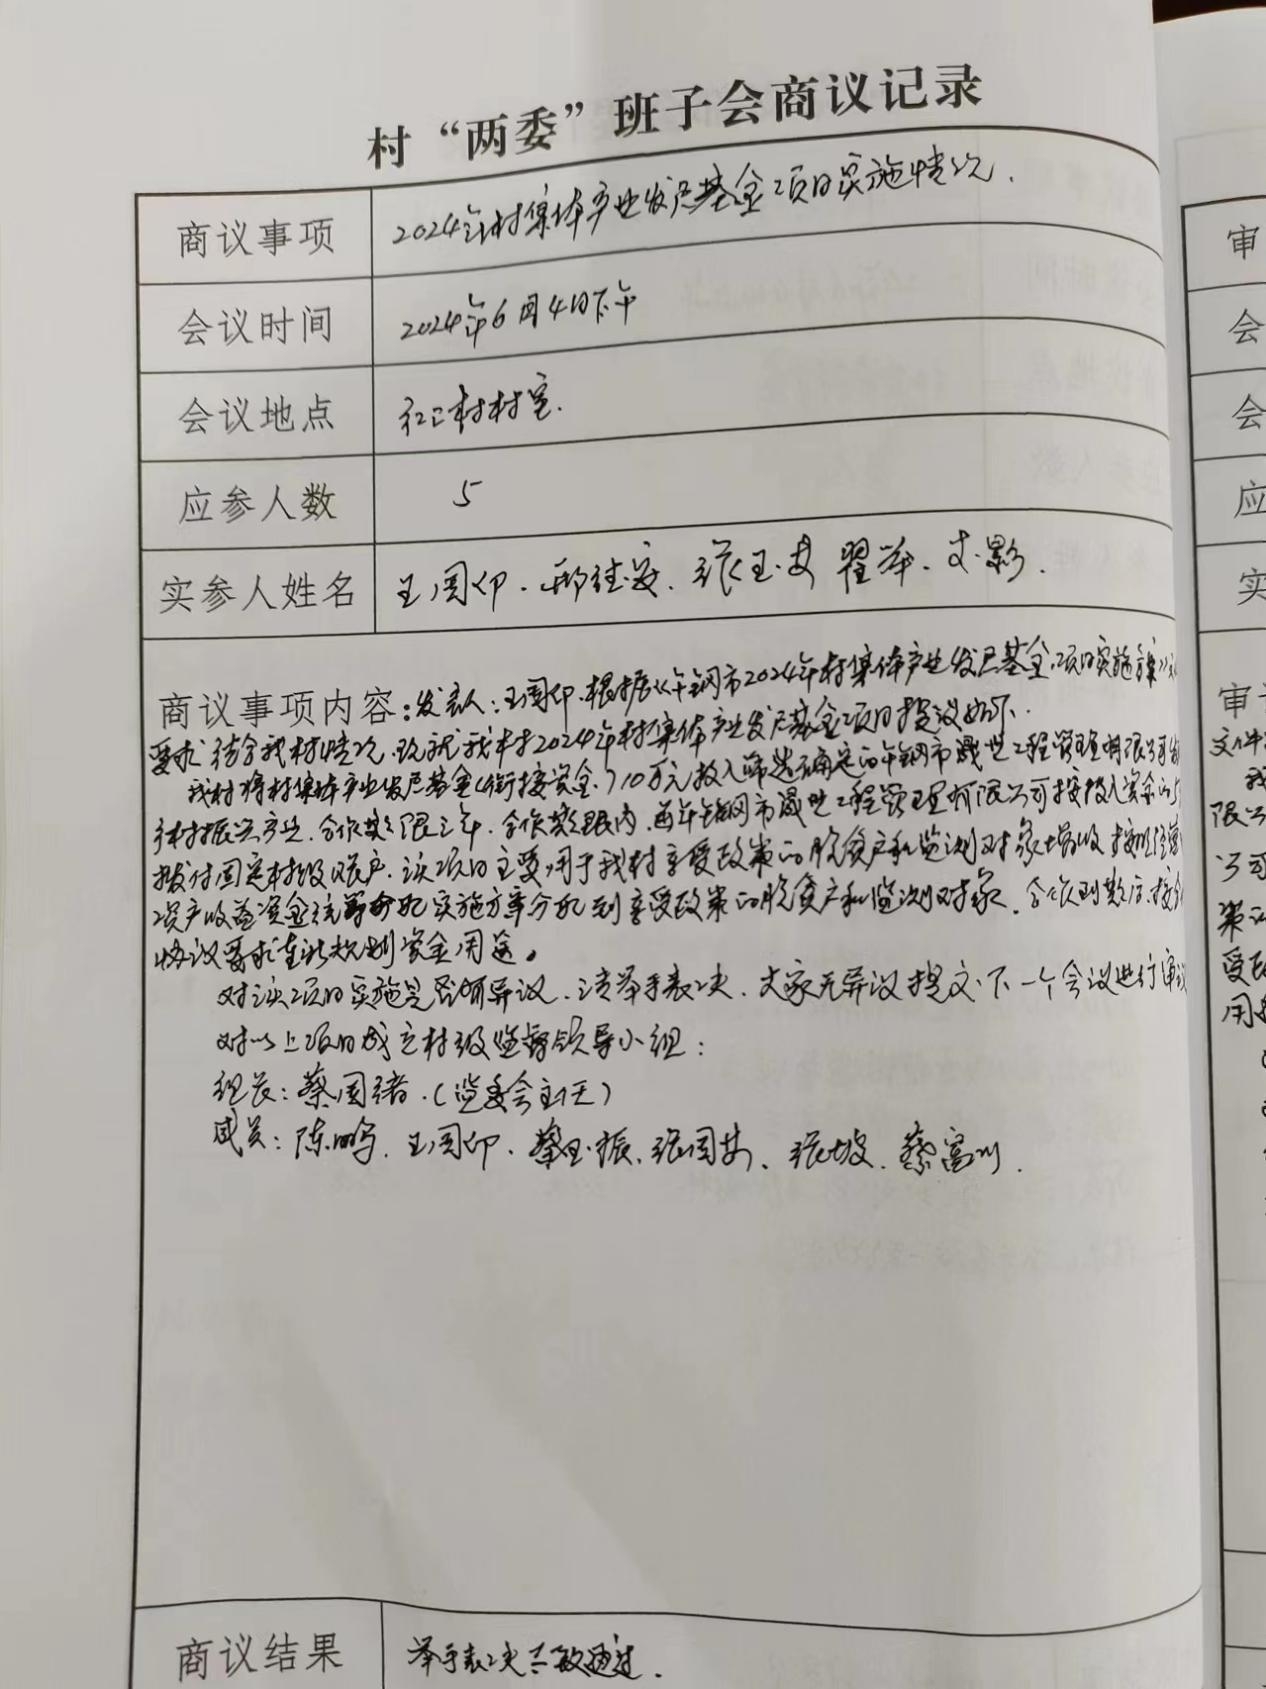 村“两委”班子会商议记录
商议事项 2024年村集体产业发展基金项目实施情况.
会议时间 2024年6月4日下午
会议地点 村村室.
应参人数 5
实参人姓名 王周印. 邢继安. 张玉 翟 . 影.
商议事项内容:发言人:王周印.根据《午钢市2024年村集体产业发展基金项目实施方案》
要求结合我村情况.现就我村2024年村集体产业发展基金项目提议如下.
我村将村集体产业发展基金(衔接资金)10万元投入筛选确定的午钢市晟世工程管理有限公司
乡村振兴产业.合作期限三年.合作期限内.每年午钢市晟世工程管理有限公司按投入资金的5
拨付固定村级账户.该项目主要用于我村享受政策的脱贫户和监测对象增收.按照
资产收益资金统筹分配实施方案分配到享受政策的脱贫户和监测对象.合作到期后.按
协议要求在次规划资金用途。
对该项目实施是否有异议.请举手表决.大家无异议提交下一个会议进行审议
对以上项目成立村级监督领导小组:
组长:蔡国绪.(监委会主任)
成员:陈鹏. 王周印. 蔡玉振. 张国 . 张坡. 蔡富川.
商议结果 举手表决一致通过.
审
会
会
应
实
审
文件
我
限公
公司
策
受政
用